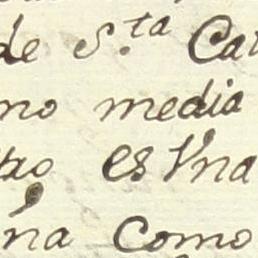 de S.ta Cat
no media
tro es Vna
na como